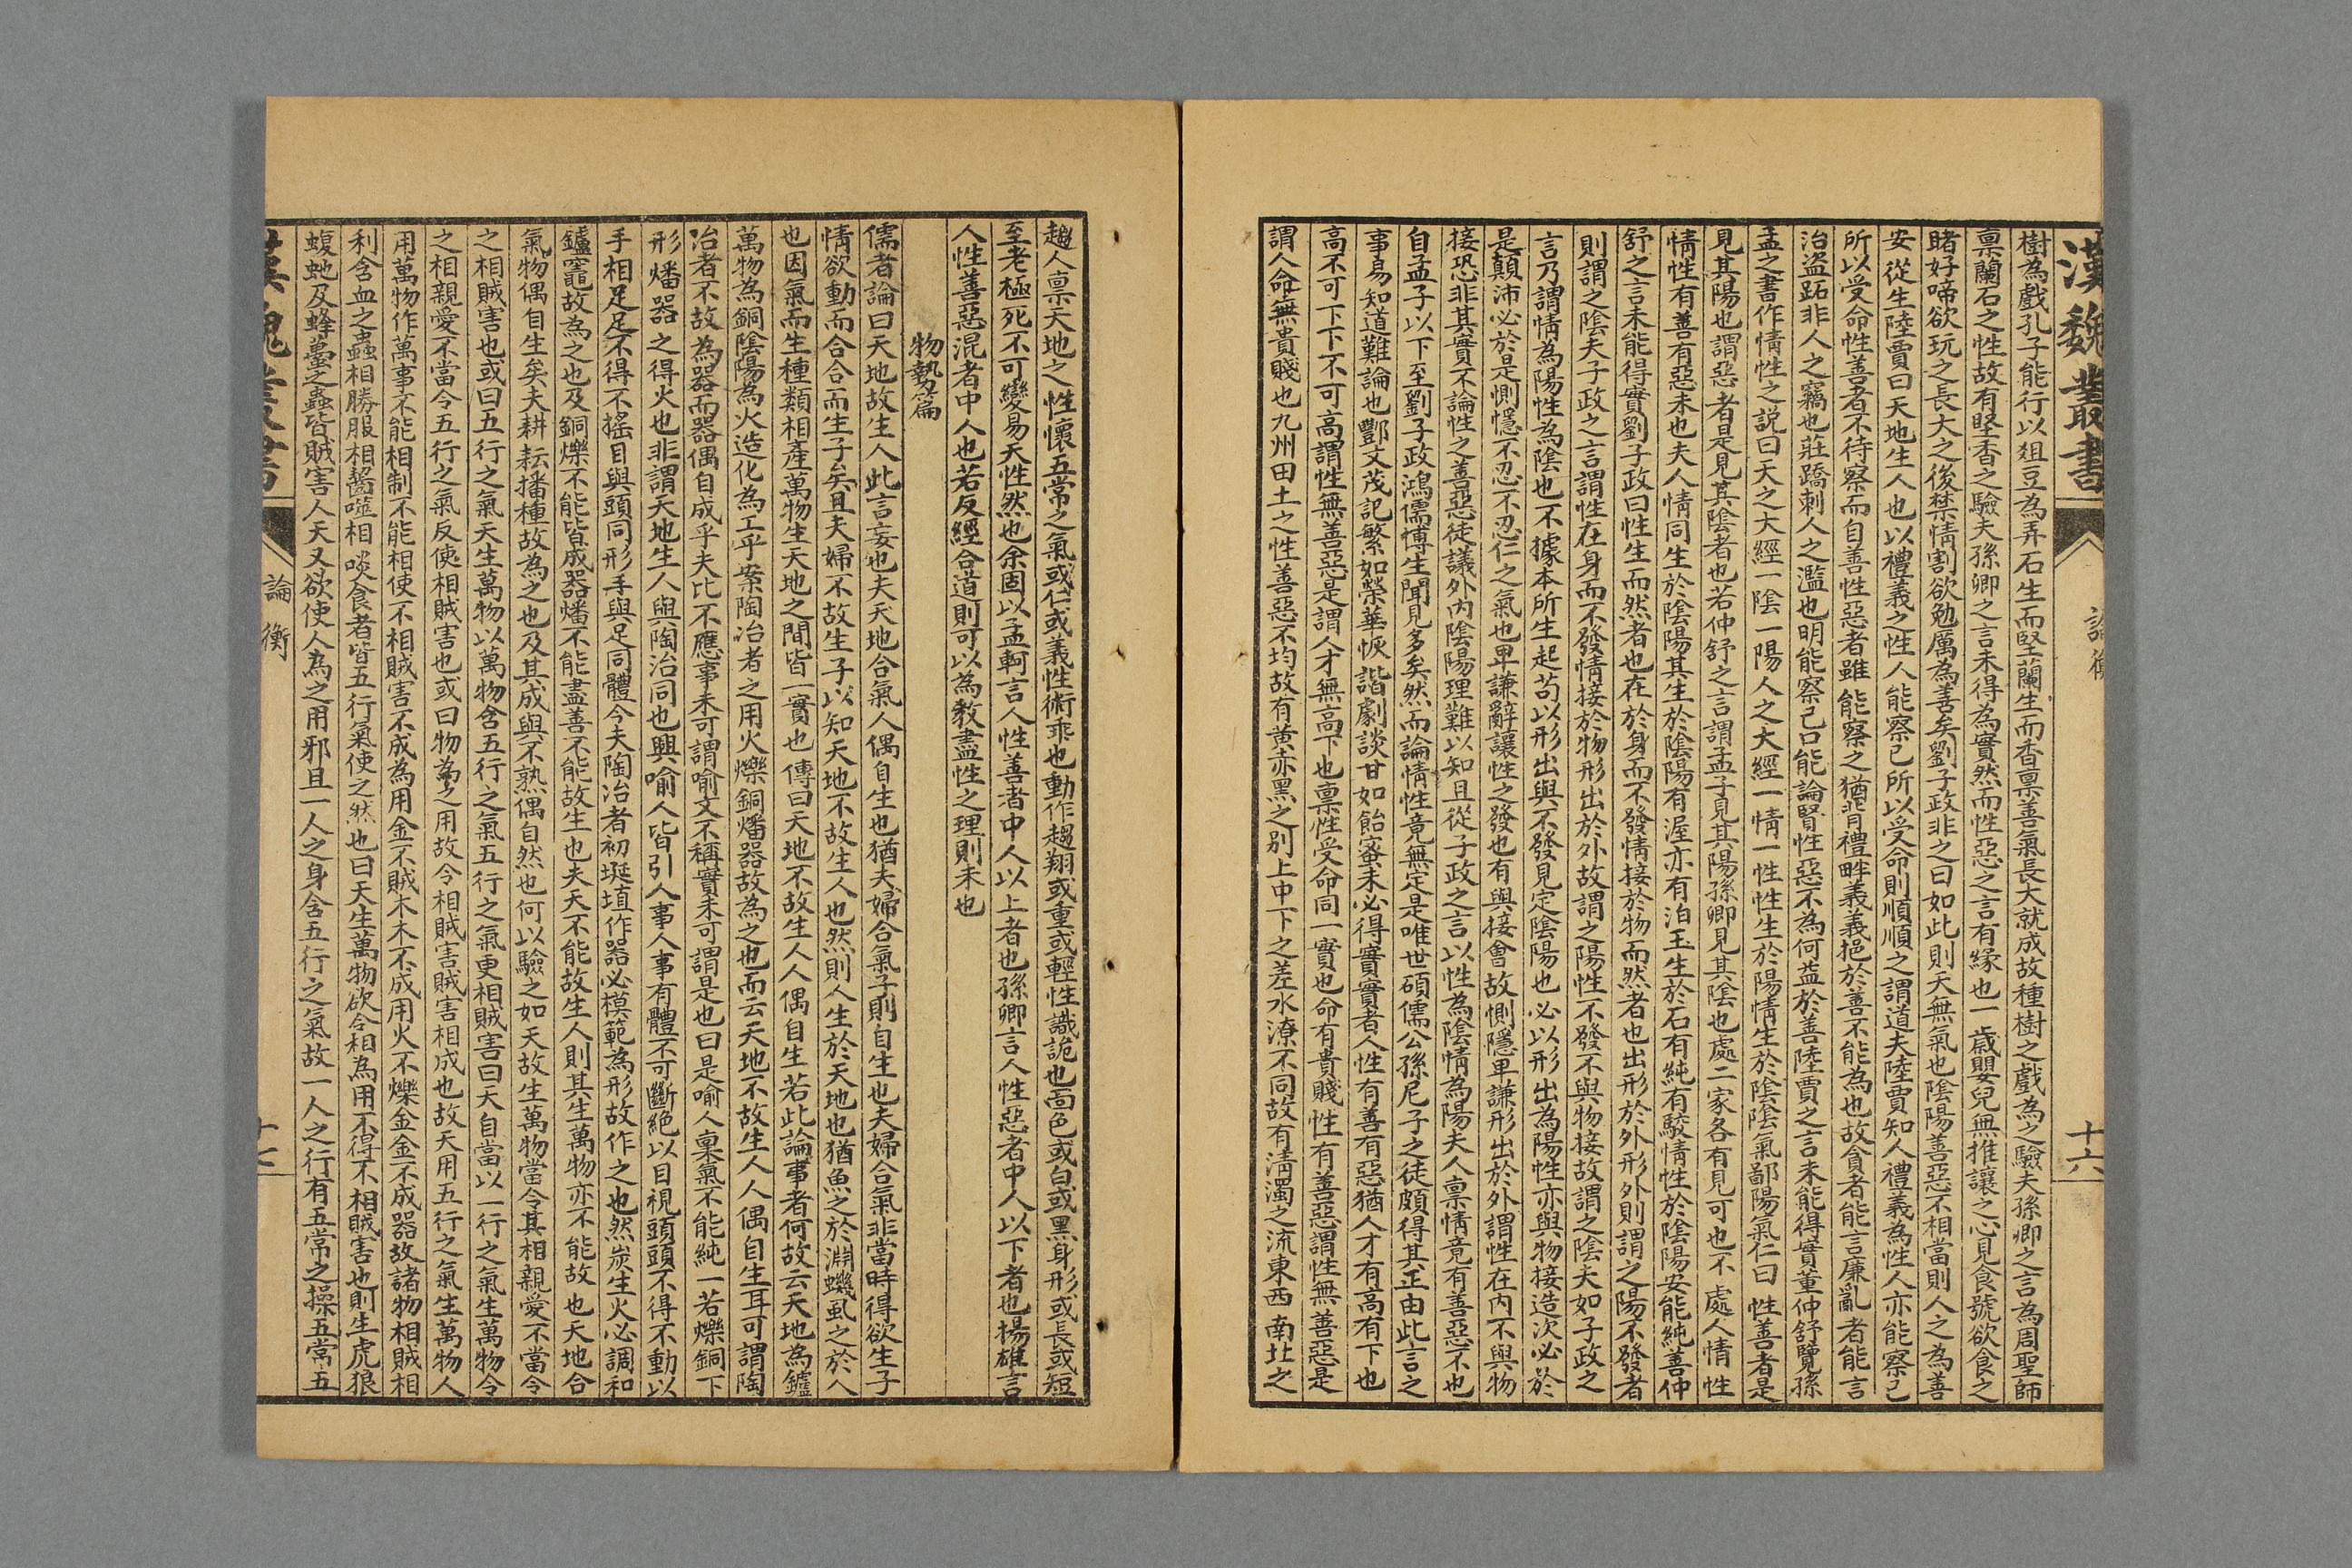 漢魏叢書
論衡
十六
樹為戲孔子能行以俎豆為弄石生而堅蘭生而香禀善氣長大就成故種樹之戲為之驗夫孫卿之言為周聖師
禀蘭石之性故有堅香之驗夫孫卿之言未得為實然而性惡之言有緣也一歲嬰兒無推讓之心見食號欲食之
睹好啼欲玩之長大之後禁情割欲勉厲為善矣劉子政非之曰如此則天無氣也陰陽善惡不相當則人之為善
安從生陸賈曰天地生人也以禮義之性人能察己所以受命則順順之謂道夫陸賈知人禮義為性人亦能察己
所以受命性善者不待察而自善性惡者雖能察之猶背禮畔義義挹於善不能為也故貪者能言廉亂者能言
治盜跖非人之竊也莊蹻刺人之濫也明能察己口能論賢性惡不為何益於善陸賈之言未能得實董仲舒覽孫
孟之書作情性之説曰天之大經一陰一陽人之大經一情一性性生於陽情生於陰陰氣鄙陽氣仁曰性善者是
見其陽也謂惡者是見其陰者也若仲舒之言謂孟子見其陽孫卿見其陰也處二家各有見可也不處人情性
情性有善有惡未也夫人情同生於陰陽其生於陰陽有渥亦有泊玉生於石有純有駮情性於陰陽安能純善仲
舒之言未能得實劉子政曰性生而然者也在於身而不發情接於物而然者也出形於外形外則謂之陽不發者
則謂之陰夫子政之言謂性在身而不發情接於物形出於外故謂之陽性不發不與物接故謂之陰夫如子政之
言乃謂情為陽性為陰也不據本所生起苟以形出與不發見定陰陽也必以形出為陽性亦與物接造次必於
是顛沛必於是惻隱不忍不忍仁之氣也卑謙辭讓性之發也有與接會故惻隱卑謙形出於外謂性在内不與物
接恐非其實不論性之善惡徒議外内陰陽理難以知且從子政之言以性為陰情為陽夫人禀情竟有善惡不也
自孟子以下至劉子政鴻儒博生聞見多矣然而論情性竟無定是唯世碩儒公孫尼子之徒頗得其正由此言之
事易知道難論也酆文茂記繁如榮華恢諧劇談甘如飴蜜未必得實實者人性有善有惡猶人才有高有下也
高不可下下不可高謂性無善惡是謂人才無高下也禀性受命同一實也命有貴賤性有善惡謂性無善惡是
謂人命無貴賤也九州田土之性善惡不均故有黄赤黑之别上中下之差水潦不同故有清濁之流東西南北之
趨人禀天地之性懷五常之氣或仁或義性術乖也動作趨翔或重或輕性識詭也面色或白或黑身形或長或短
至老極死不可變易天性然也余固以孟軻言人性善者中人以上者也孫卿言人性惡者中人以下者也揚雄言
人性善惡混者中人也若反經合道則可以為教盡性之理則未也
物勢篇
儒者論曰天地故生人此言妄也夫天地合氣人偶自生也猶夫婦合氣子則自生也夫婦合氣非當時得欲生子
情欲動而合合而生子矣且夫婦不故生子以知天地不故生人也然則人生於天地也猶魚之於淵蟣虱之於人
也因氣而生種類相產萬物生天地之間皆一實也傳曰天地不故生人人偶自生若此論事者何故云天地為鑪
萬物為銅陰陽為火造化為工乎案陶冶者之用火爍銅燔器故為之也而云天地不故生人人偶自生耳可謂陶
冶者不故為器而器偶自成乎夫比不應事未可謂喻文不稱實未可謂是也曰是喻人稟氣不能純一若爍銅下
形燔器之得火也非謂天地生人與陶冶同也興喻人皆引人事人事有體不可斷絶以目視頭頭不得不動以
手相足足不得不搖目與頭同形手與足同體今夫陶冶者初埏埴作器必模範為形故作之也然炭生火必調和
鑪竈故為之也及銅爍不能皆成器燔不能盡善不能故生也夫天不能故生人則其生萬物亦不能故也天地合
氣物偶自生矣夫耕耘播種故為之也及其成與不熟偶自然也何以驗之如天故生萬物當令其相親愛不當令
之相賊害也或曰五行之氣天生萬物以萬物含五行之氣五行之氣更相賊害曰天自當以一行之氣生萬物令
之相親愛不當令五行之氣反使相賊害也或曰物為之用故令相賊害賊害相成也故天用五行之氣生萬物人
用萬物作萬事不能相制不能相使不相賊害不成為用金不賊木木不成用火不爍金金不成器故諸物相賊相
利含血之蟲相勝服相齧噬相啖食者皆五行氣使之然也曰天生萬物欲令相為用不得不相賊害也則生虎狼
蝮虵及蜂蠆之蟲皆賊害人天又欲使人為之用邪且一人之身含五行之氣故一人之行有五常之操五常五
漢魏叢書
論衡
十七